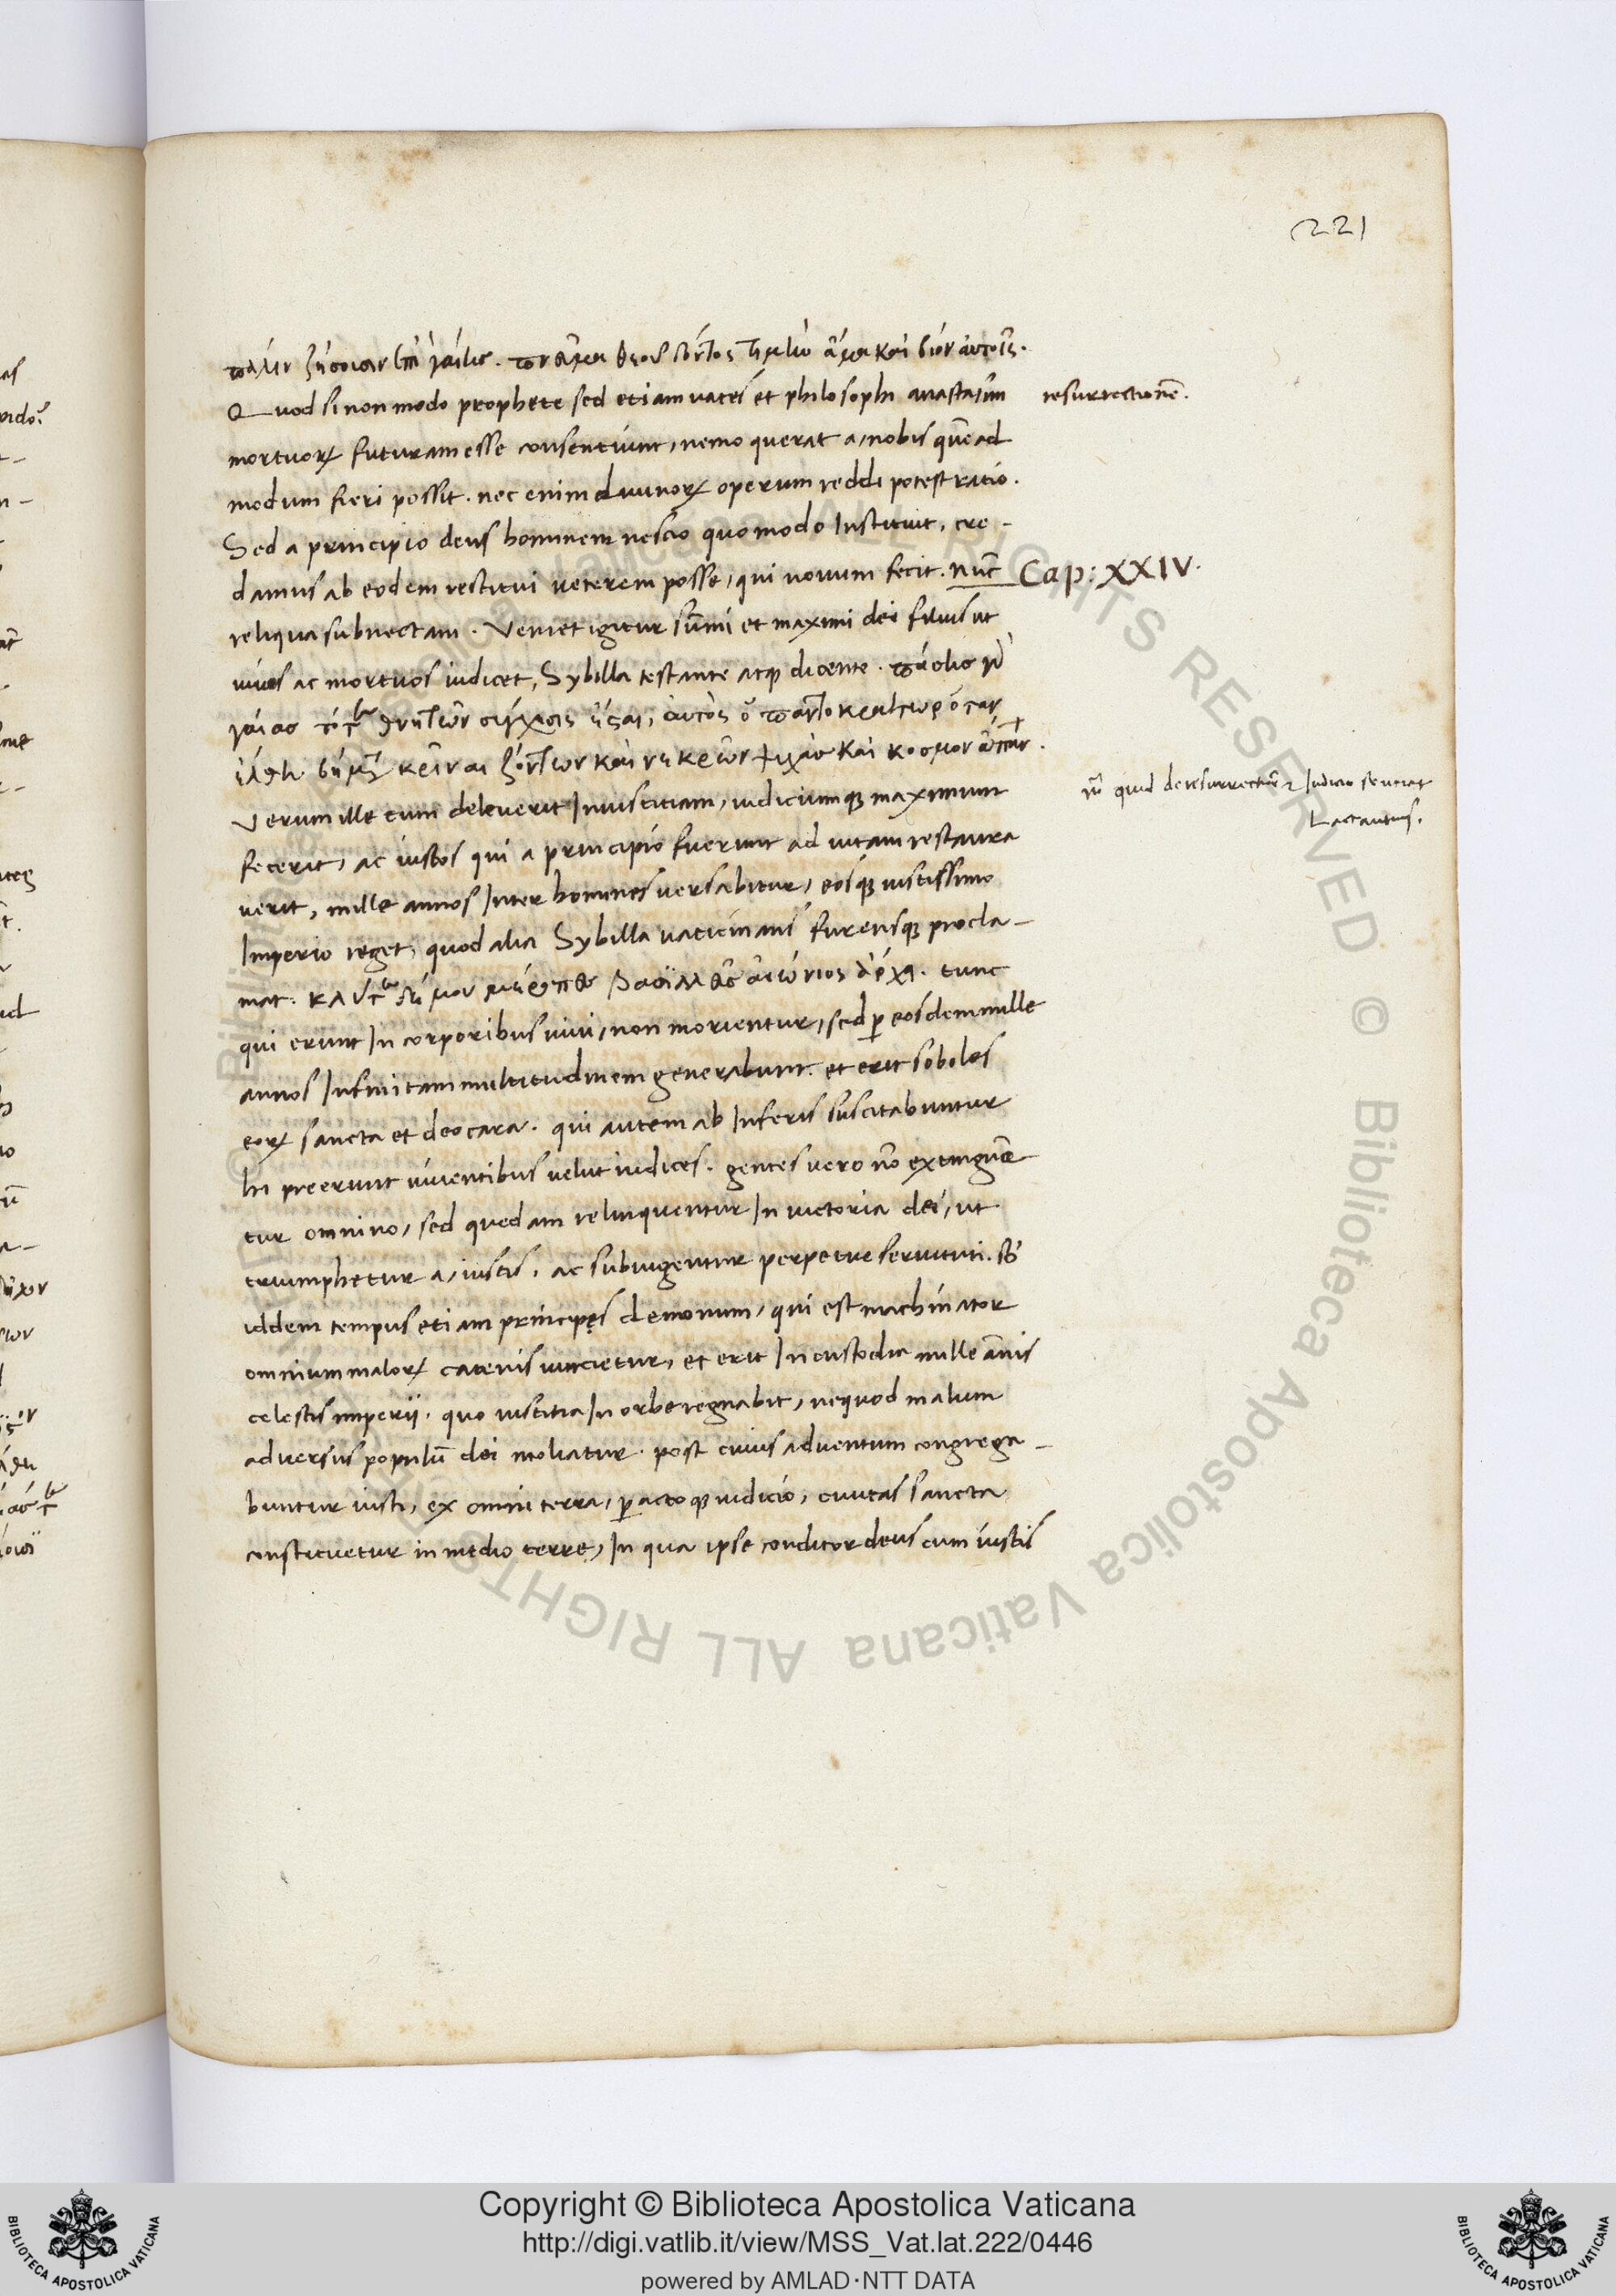 221
πάλιν ζήσουσιν ἐπὶ γαίης . πνεῦμα θεοῦ δόντος τιμὴν ἅμα καὶ βίον αὐτοῖς .
Quod si non modo prophete sed etiam vates et philosophi anastasim
resurrectionē .
mortuoꝝ futuram esse consentiunt, nemo querat a, nobis quēad
modum fieri possit . nec enim divinoꝝ operum reddi potest ratio .
Sed a principio deus hominem nescio quomodo Instituit, cre -
damus ab eodem restitui veterem posse, qui novum fecit . nūc
Cap: XXIV .
reliqua subnectam . Veniet igitur sūmi et maximi dei filius ut
vivos ac mortuos iudicet, Sybilla testante atqꝫ dicente .
Verum ille cum deleverit Iniustitiam, iudiciumqꝫ maximum
fecerit, ac iustos qui a principio fuerunt ad vitam restaura
verit, mille annos Inter homines versabitur, eosqꝫ iustissimo
Imperio reget, quod alia Sybilla vaticinans furensqꝫ procla -
mat . tunc
qui erunt In corporibus vivi, non morientur, sed ꝑ eosdem mille
annos Infinitam multitudinem generabunt . et erit soboles
eoꝝ sancta et deo cara . qui autem ab Inferis suscitabuntur
hi preerunt viventibus velut iudices . gentes vero nō extinguē
tur omnino, sed quedam relinquentur In victoria dei, ut
triumphetur a, iustis, ac subiugentur perpetue servituti . Sb
iddem tempus etiam principes demonum, qui est machinator
omnium maloꝝ catenis vincietur, et erit In custodia mille ānis
celestis imperii . quo iustitia In orbe regnabit, nequod malum
adversus populū dei moliatur . post cuius adventum congrega -
buntur iusti, ex omni terra, ꝑactoqꝫ iudicio, civitas sancta
constituetur in medio terre, In qua ipse conditor deus cum iustis
quid de resurrectiōe ⁊ Iudicio sentiat
Lactantius .
Copyright © Biblioteca Apostolica Vaticana
http://digi.vatlib.it/view/MSS_Vat.lat.222/0446
powered by AMLAD·NTT DATA
BIBLIOTECA APOSTOLICA VATICANA
BIBLIOTECA APOSTOLICA VATICANA
© Biblioteca Apostolica Vaticana ALL RIGHTS RESERVED